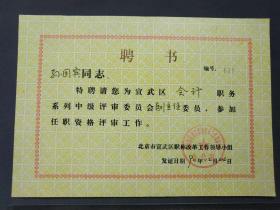 聘书
编号:
同志
特聘请您为宣武区 会计 职务
系列中级评审委员会副主任委员,参加
任职资格评审工作。
北京市宣武区职称改革工作领导小组
发证日期 年 月 日